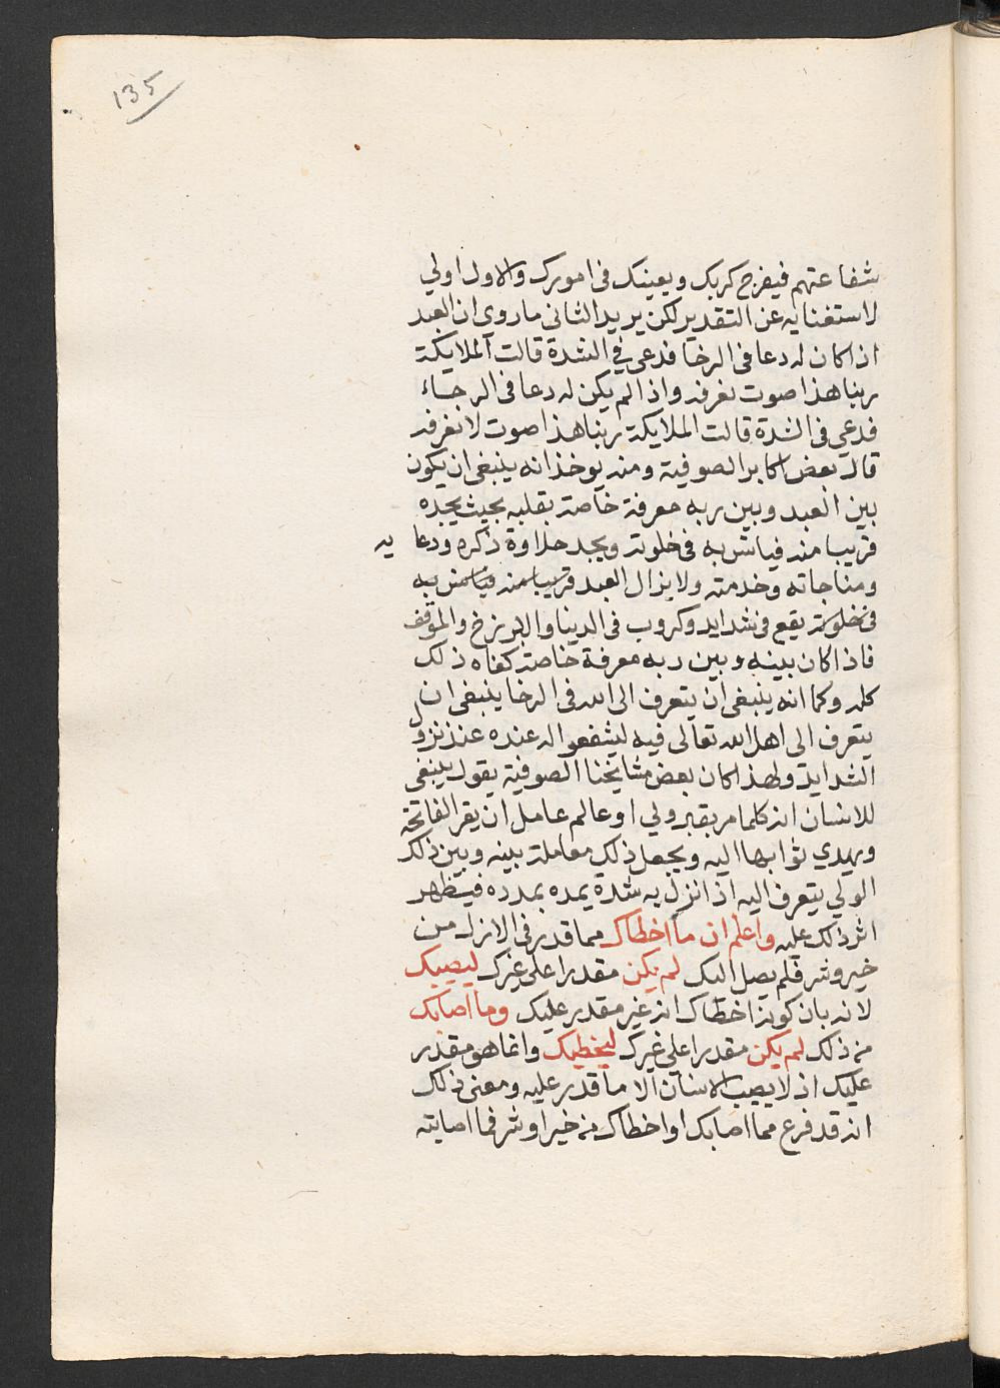 135
شفاعتهم فيفرج كربك ويعينك فى امورك والاول اولي
لاستغنايه عن التقدير لكن يريد الثانى ما روي ان العبد
اذا كان له دعا فى الرخا فدعى في الشدة قالت الملايكة
ربنا هذا صوت نعرفه واذا لم يكن له دعا فى الرخاء
فدعي فى الشدة قالت الملايكة ربنا هذا صوت لا نعرفه
قال بعض اكابر الصوفية ومنه يوخذ انه ينبغى ان يكون
بين العبد وبين ربه معرفة خاصة بقلبه بحيث يجده
قريبا منه فياش به فى خلوته ويجد حلاوة ذكره ودعا يه
ومناجاته وخدمته ولا يزال العبد قريبا منه به
فى خلوته يقع فى شدايد وكروب فى الدينا والبرزخ والموقف
فاذا كان بينه وبين ربه معرفة خاصة كفاه ذلك
كله وكما انه ينبغى ان يتعرف الى الله فى الرخا ينبغى ان
يتعرف الى اهل الله تعالى فيه ليشفعوا له عنده عند نزول
الشدايد ولهذا كان بعض مشايخنا الصوفية يقول ينبغى
للانسان انه كلما مر بقبر ولي او عالم عامل ان يقر الفاتحة
ويهدي ثوابها اليه ويجعل ذلك معاملة بينه وبين ذلك
الولي يتعرف اليه اذا نزل به شدة يمده بمدده فيظهر
اثر ذلك عليه واعلم ان ما اخطاك مما قدر فى الازل من
خير وشر فلم يصل اليك لم يكن مقدرا على غيرك ليصيبك
لانه بان كونه اخطاك انه غير مقدر عليك وما اصابك
من ذلك لم يكن مقدرا على غيرك ليخطيك وانما هو مقدر
عليك اذ لا يصيب الانسان الا ما قدر عليه ومعنى ذلك
انه قد فرع مما اصابك او اخطاك من خير او شر فما اصابته